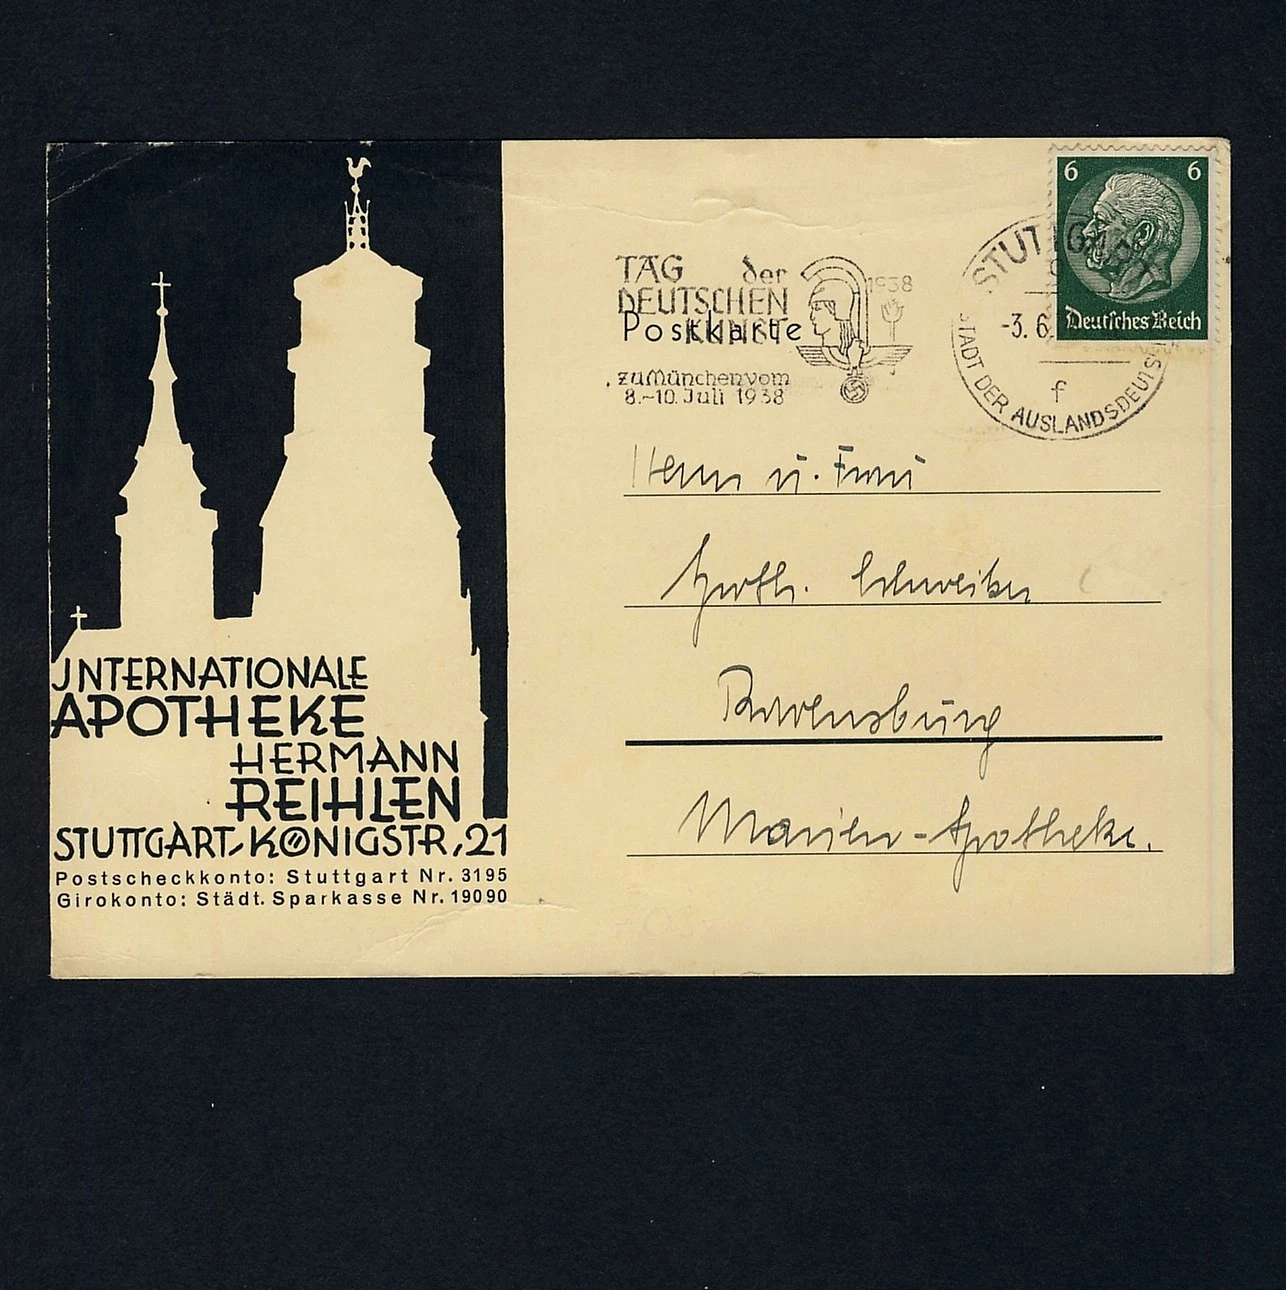 JNTERNATIONALE
APOTHEKE
HERMANN
REIHLEN
STUTTGART, KÖNIGSTR, 21
Postscheckkonto: Stuttgart Nr. 3195
Girokonto: Städt. Sparkasse Nr. 19090
TAG der
DEUTSCHEN
KUNST
1938
Postkarte
zu München vom
8.-10. Juli 1938
STUTTGART
-3. 6.
f
STADT DER AUSLANDSDEUTS
6 6
Deutsches Reich
Herrn u. Frau
Ravensburg
Marien-Apotheke.